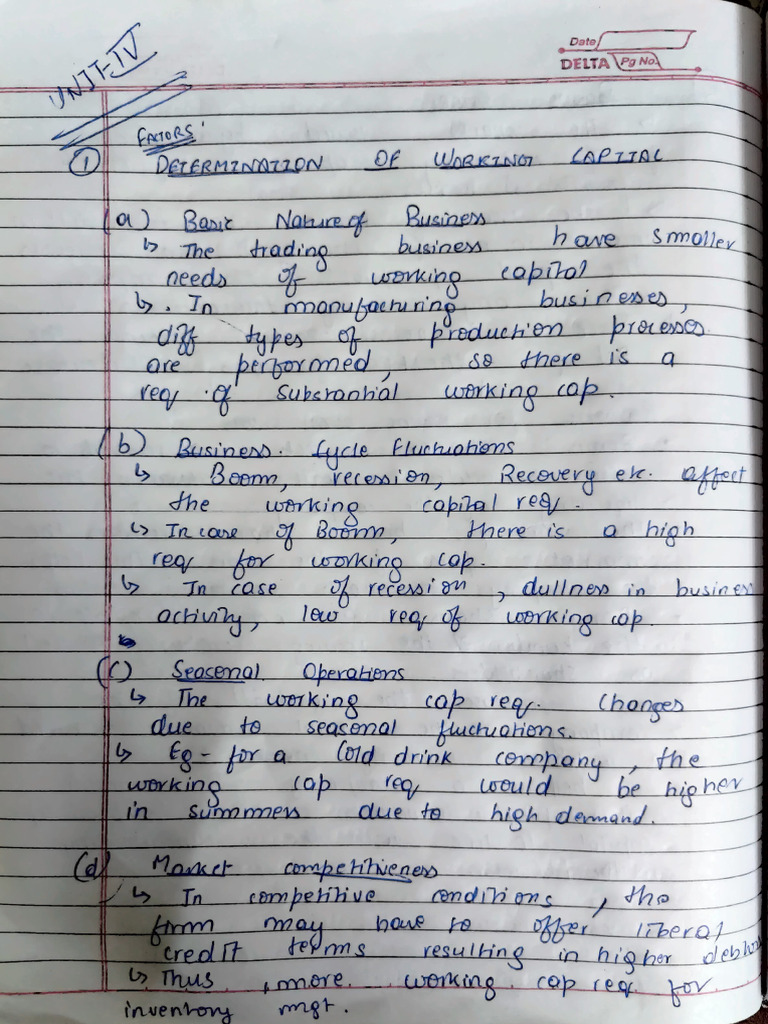 UNIT-IV
Date
DELTA Pg No.
FACTORS:
① DETERMINATION OF WORKING CAPITAL
(a) Basic Nature of Business
↳ The trading business have smaller
needs of working capital
↳ . In manufacturing businesses,
diff types of production processes
are performed, so there is a
req of substantial working cap.
(b) Business. Cycle Fluctuations
↳ Boom, recession, Recovery etc. affect
the working capital req.
↳ In case of Boom, there is a high
req for working cap.
↳ In case of recession, dullness in business
activity, low req of working cap.
(c) Seasonal Operations
↳ The working cap req. changes
due to seasonal fluctuations.
↳ Eg - for a Cold drink company, the
working cap req would be higher
in summers due to high demand.
(d) Market competitiveness
↳ In competitive conditions, the
firm may have to offer liberal
credit terms resulting in higher
↳ Thus, more working cap req for
inventory mgt.